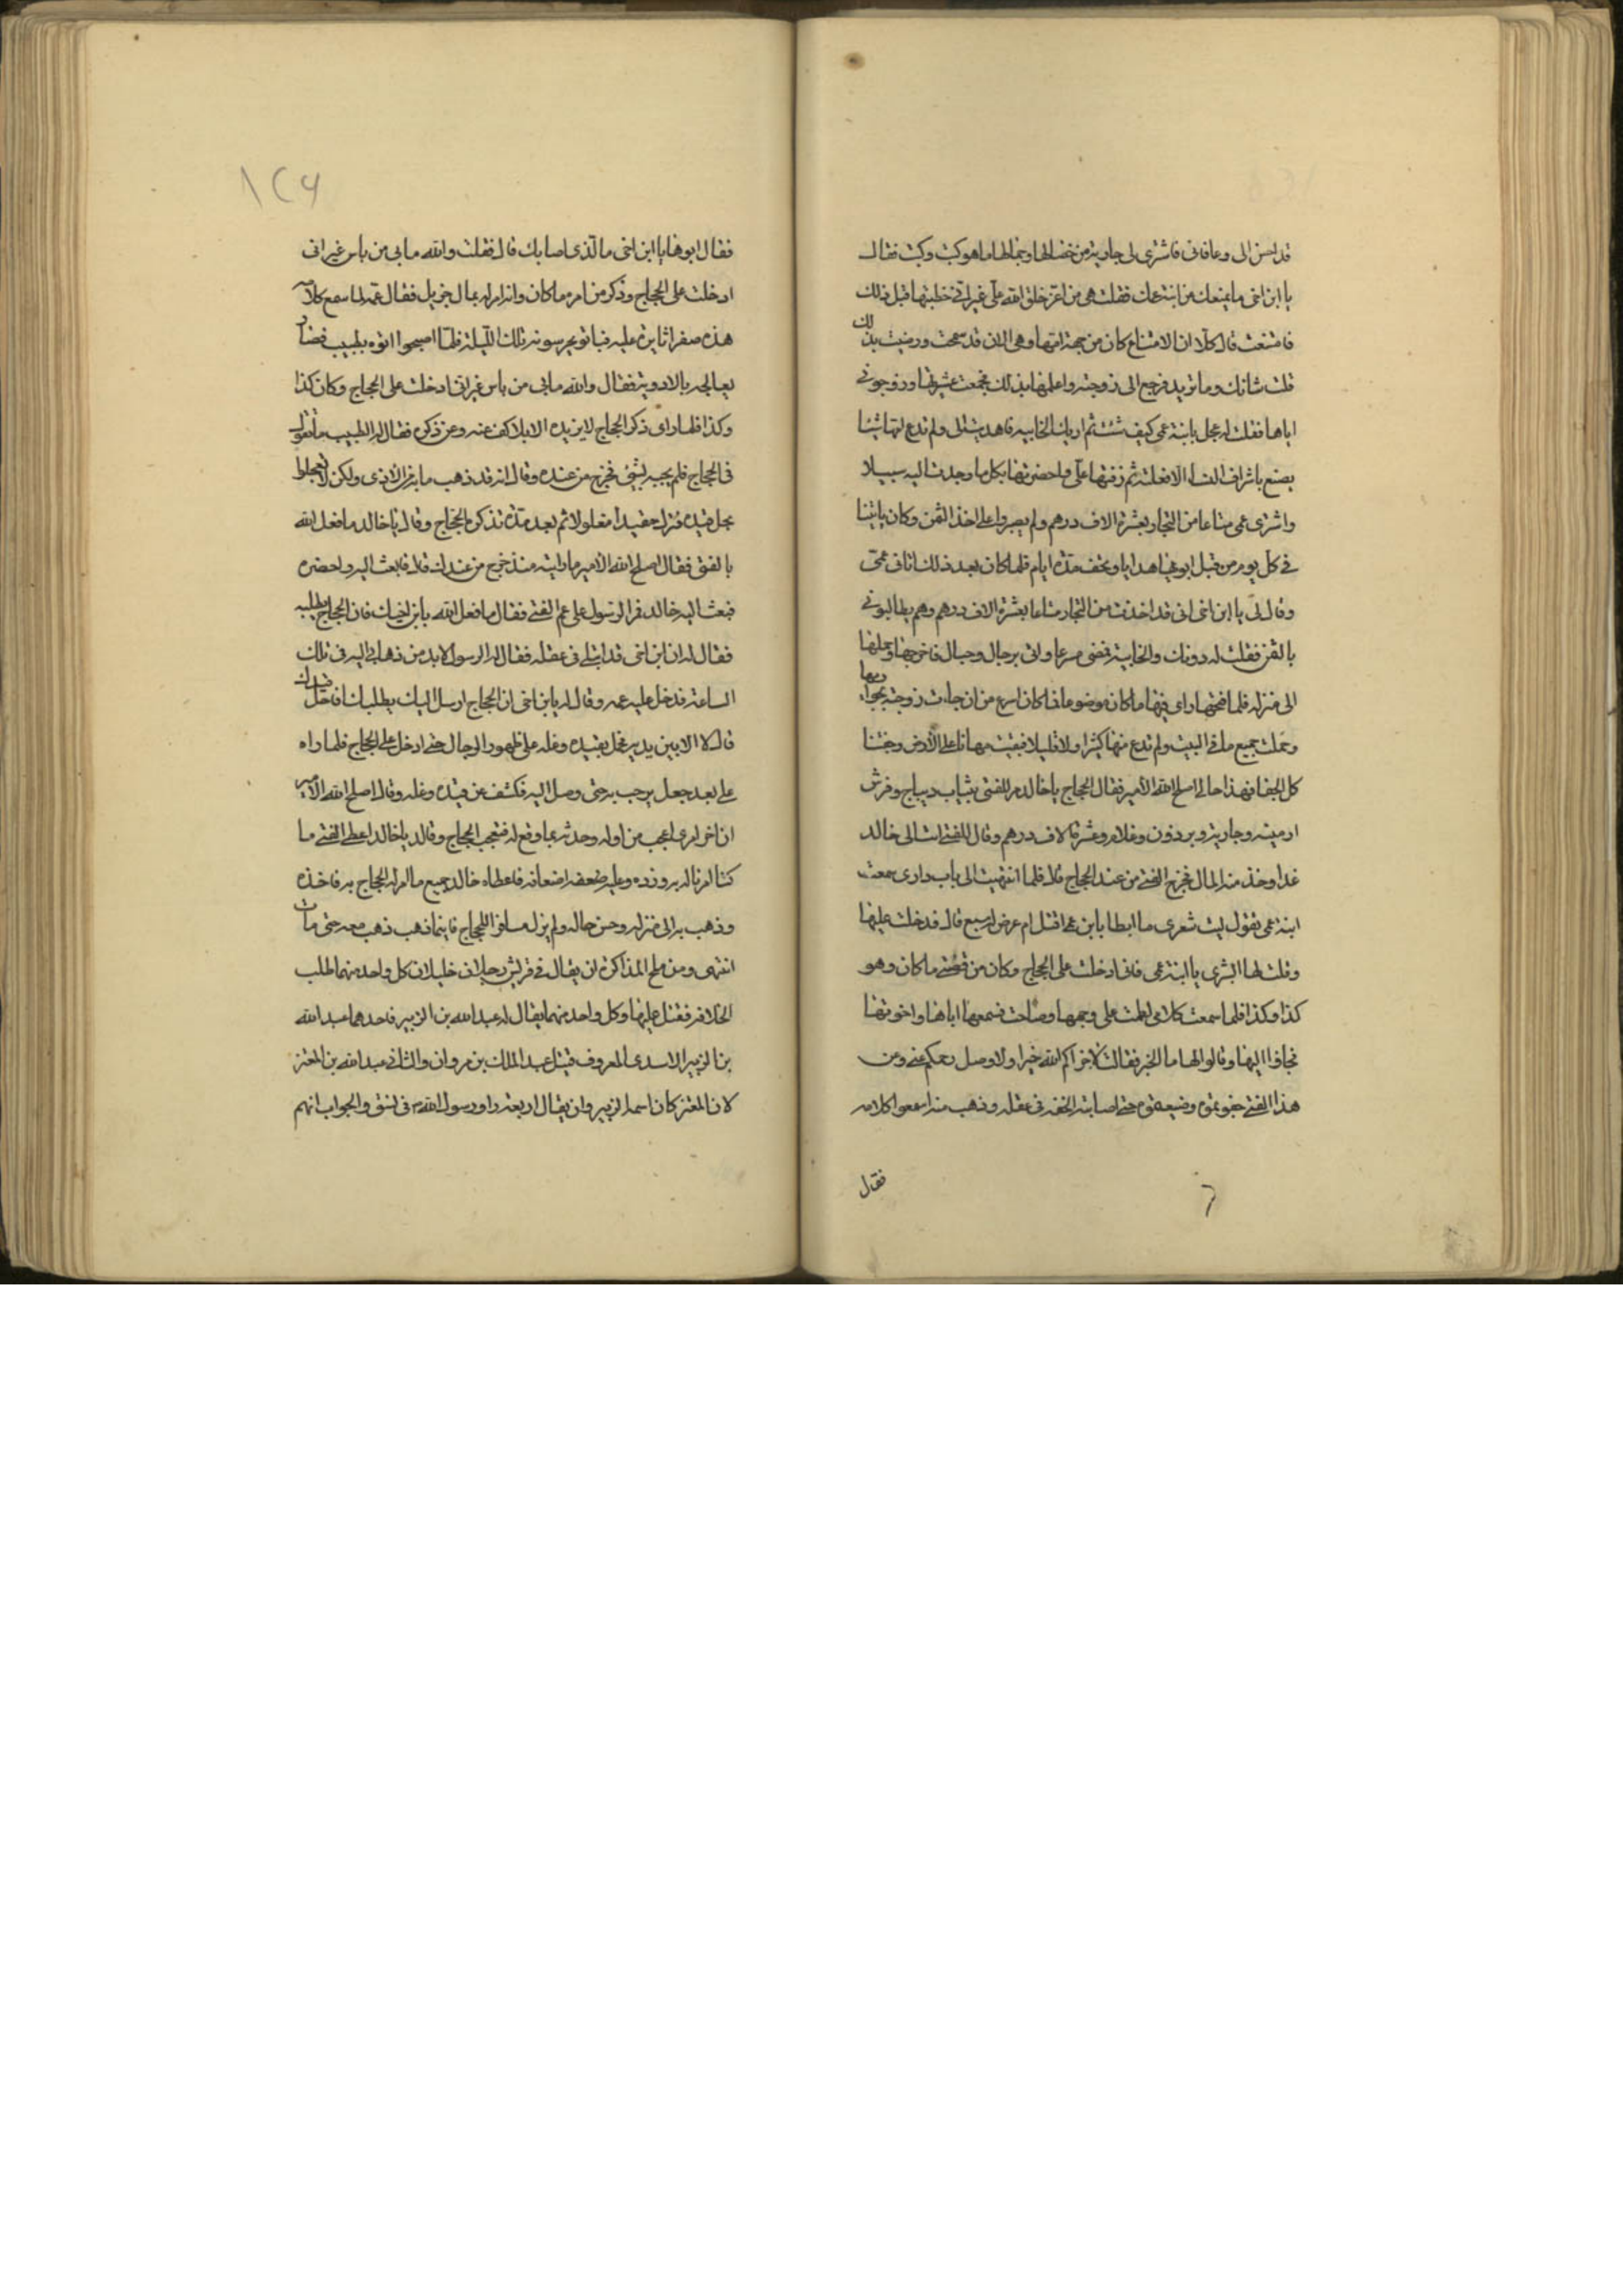 قد احسن الى وعافانى فاشترى لى جارية من خصالها وجمالها ما هو كيت وكيت فقال
يا ابن اخى ما يمنعك من ابنة عمك فقلت هى من اعز خلق الله على غير انى خطبتها قبل ذلك
فامتنعت قال كلا ان الامتناع كان من جهة امها وهى الان قد سمحت ورضيت بذلك
قلت شانك وما تريد فرجع الى زوجته واعلمها بذلك فجمعت عشيرتها وزوجونى
اياها فقلت له عجل بابنة عمى كيف شئت ثم اريك الخابية فاهديت الى ولم تدع امها شيئا
يصنع باشراف النساء الا فعلته ثم زفتها على واحضرتها بكل ما وجدت اليه سبيلا
واشترى عمى متاعا من التجار بعشرة الاف درهم ولم يصبروا على اخذ الثمن وكان ياتينا
فى كل يوم من قبل ابويها هدايا وتحف مدة ايام فلما كان بعد ذلك اتانى عمى
وقال لى يا ابن اخى انى قد اخذت من التجار متاعا بعشرة الاف درهم وهم يطالبونى
بالثمن فقلت له دونك والخابية فمضى مسرعا واتى برجال وحبال فاخرجها وحملها
الى منزله فلما فتحها راى فيها ما كان موضوعا فما كان اسرع من ان جاءت زوجته بجواريها
وحملت جميع ما فى البيت ولم تدع منها كثيرا ولا قليلا فبقيت مهانا على الارض وجفتنا
كل الجفا فهذا حالى اصلح الله الامير فقال الحجاج يا خالد مر للفتى بثياب ديباج وفرش
ارمينية وجارية وبرذون وغلام وعشرة الاف درهم وقال للفتى ائت الى خالد
غدا وخذ منه المال فخرج الفتى من عند الحجاج قال فلما انتهيت الى باب دارى سمعت
ابنة عمى تقول ليت شعرى ما ابطا بابن عمى اقتل ام عرض له سبع قال فدخلت عليها
وقلت لها ابشرى يا ابنة عمى فانى ادخلت على الحجاج وكان من قصتى ما كان وهو
كذا وكذا فلما سمعت كلامى لطمت على وجهها وصاحت فسمعها اباها واخوتها
فجاؤا اليها وقالوا لها ما الخبر فقالت لا جزاكم الله خيرا ولا وصل رحمكم عنى وعن
هذا الفتى جفوتموه وضيعتموه حتى اصابته الخفة فى عقله وذهب منه اسمعوا كلامه
فقال
١٢٦
فقال ابوها يا ابن اخى ما الذى اصابك قال فقلت والله ما بى من باس غير انى
ادخلت على الحجاج وذكر من امره ما كان وانه امر له بمال جزيل فقال عمه لما سمع كلامه
هذه صفرا ثايرة عليه فباتو يحرسونه تلك الليلة فلما اصبحوا اتوه بطبيب فصار
يعالجه بالادوية فقال والله ما بى من باس غير انى ادخلت على الحجاج وكان كذا
وكذا فلما راى ذكر الحجاج لا يزيده الا بلا كف عنه وعن ذكره فقال له الطبيب ما تقول
فى الحجاج فلم يجبه بشئ فخرج من عنده وقال انه قد ذهب ما به من الاذى ولكن لا تعجلوا
بحل قيده فنزله مقيدا مغلولا ثم بعد مدة تذكره الحجاج وقال يا خالد ما فعل الله
بالفتى فقال اصلح الله الامير ما رايته منذ خرج من عندك قال فابعث اليه واحضره
فبعث اليه خالد فمر الرسول على عم الفتى فقال ما فعل الله بابن اخيك فان الحجاج يطلبه
فقال له ان ابن اخى قد ابتلى فى عقله فقال له الرسول لا بد من ذهابى اليه فى تلك
الساعة فدخل عليه عمه وقال له يا ابن اخى ان الحجاج ارسل اليك يطلبك افاحل قيدك
قال لا الا بين يديه فحمل بقيده وغله على ظهور الرجال حتى ادخل على الحجاج فلما راه
على بعد جعل يرحب به حتى وصل اليه فكشف عن قيده وغله وقال اصلح الله الامير
ان اخر امرى اعجب من اوله وحدثه بما وقع له فتعجب الحجاج وقال يا خالد اعط الفتى ما
كنا امرنا له به وزده وعليه ضعفه اضعافه فاعطاه خالد جميع ما امر له الحجاج به فاخذه
وذهب به الى منزله وحسن حاله ولم يزل للحجاج فاينما ذهب ذهب معه حتى مات
انتهى ومن ملح المذاكرة ان يقال فى قريش رجلان خليلان كل واحد منهما طلب
الخلافة فقتل عليها وكل واحد منهما يقال له عبد الله بن الزبير فاحدهما عبد الله
بن الزبير الاسدى المعروف قتيل عبد الملك بن مروان والثانى عبد الله بن المعتز
لان المعتز كان اسمه الزبير وان يقال اربعة راو رسول الله فى نسق والجواب انهم